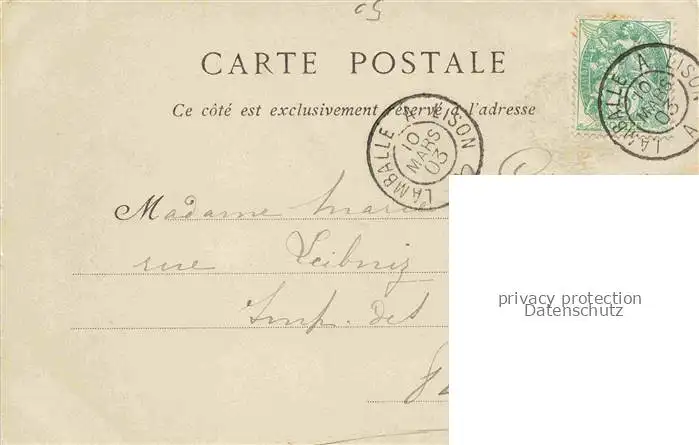 CARTE POSTALE
Ce côté est exclusivement réservé à l'adresse
LAMBALLE A LISON
10
MARS
03
LAMBALLE A LISON
10
MARS
03
Madame
rue Leibniz
Imp. des
privacy protection
Datenschutz